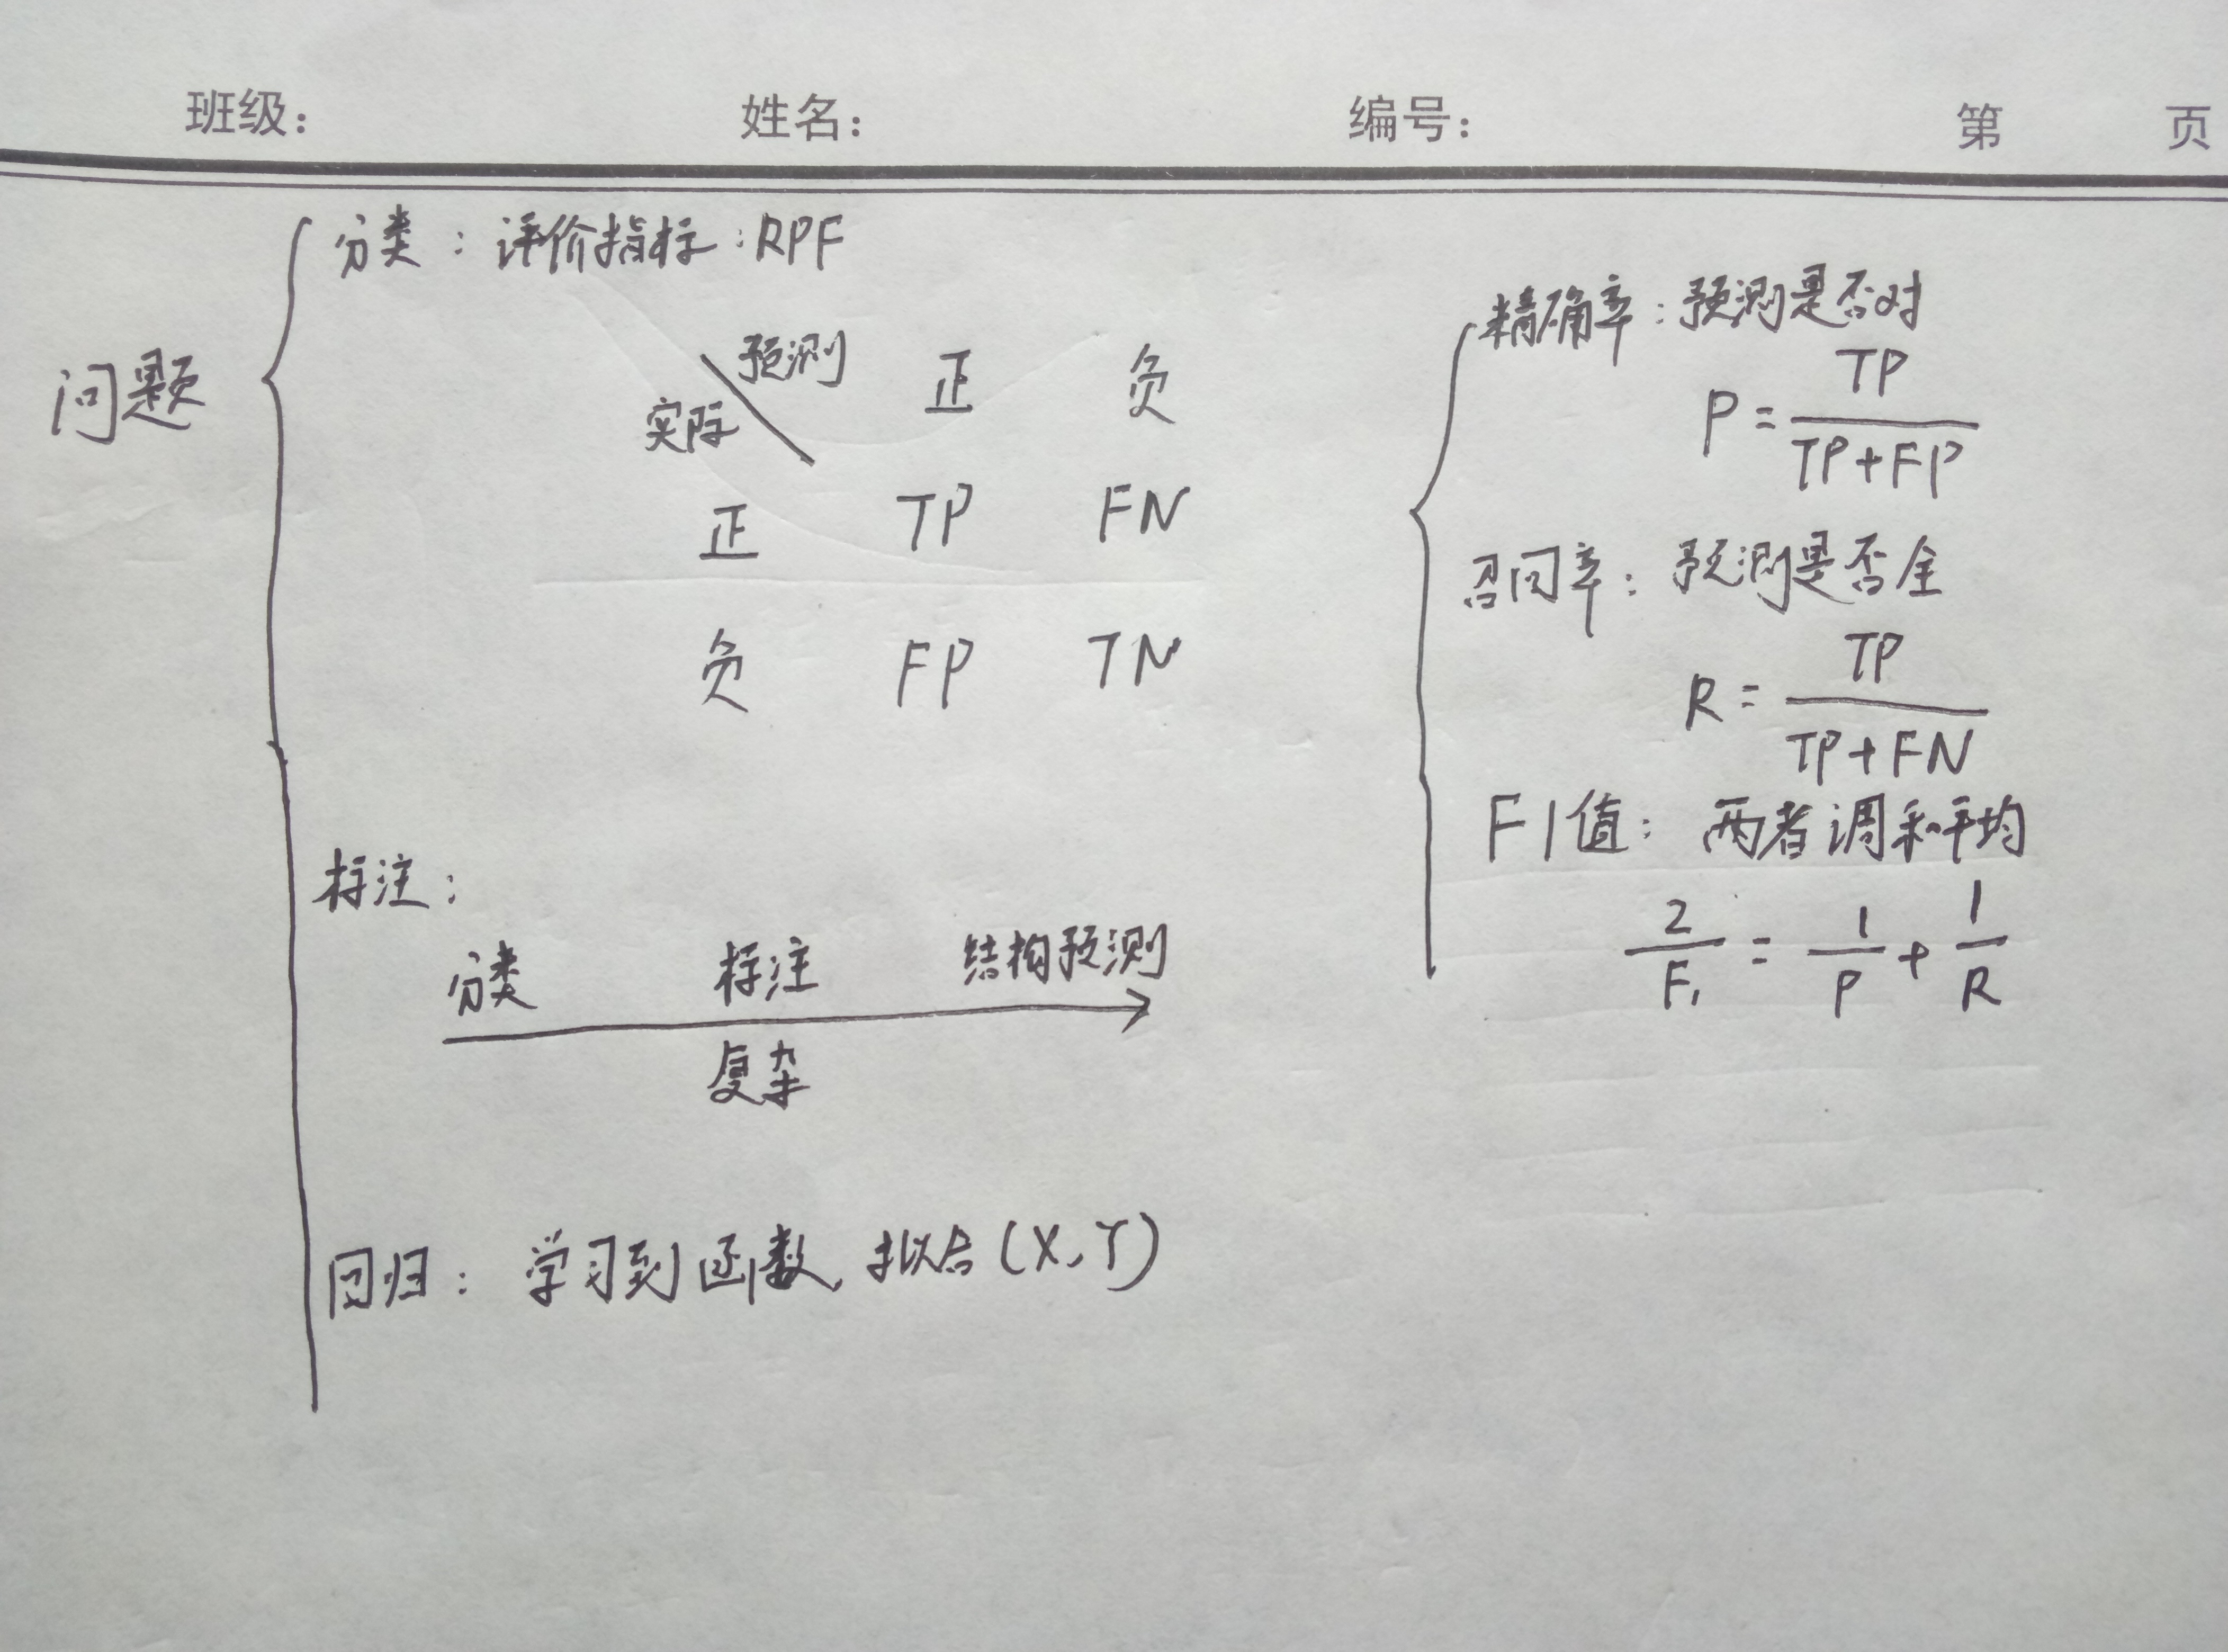 班级： 姓名： 编号： 第 页
问题
分类：评价指标：RPF
预测 正 负
实际
正 TP FN
负 FP TN
精确率：预测是否对
P = TP / (TP+FP)
召回率：预测是否全
R = TP / (TP+FN)
F1值：两者调和平均
2/F₁ = 1/P + 1/R
标注：
分类 标注 结构预测
复杂
回归：学习到函数，拟合(X,Y)